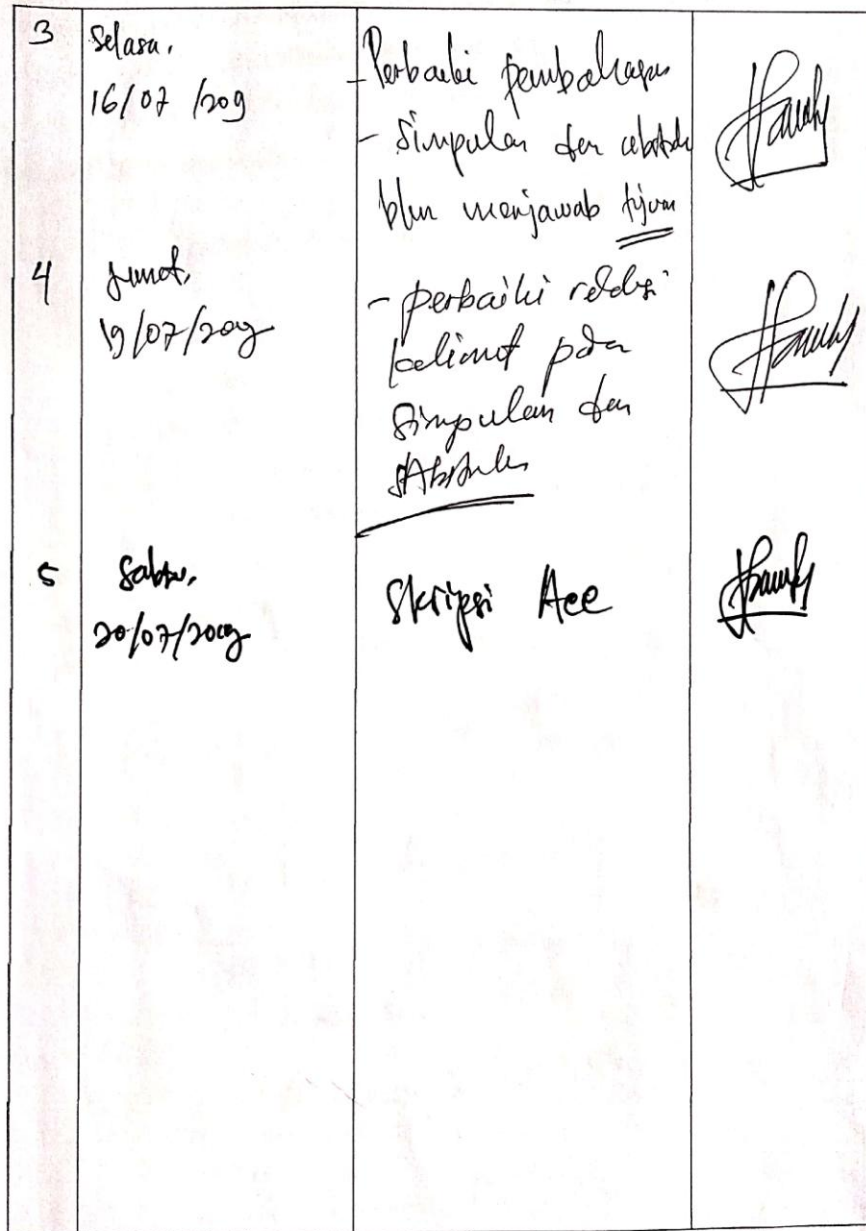 3
Selasa,
16/07/209
- Perbaiki pembahasan
- Simpulan dan abstrak
blm menjawab tujuan
4
Jumat,
19/07/2019
- perbaiki redaksi
kalimat pada
Simpulan dan
Abstrak
5
Sabtu,
20/07/2019
Skripsi Acc